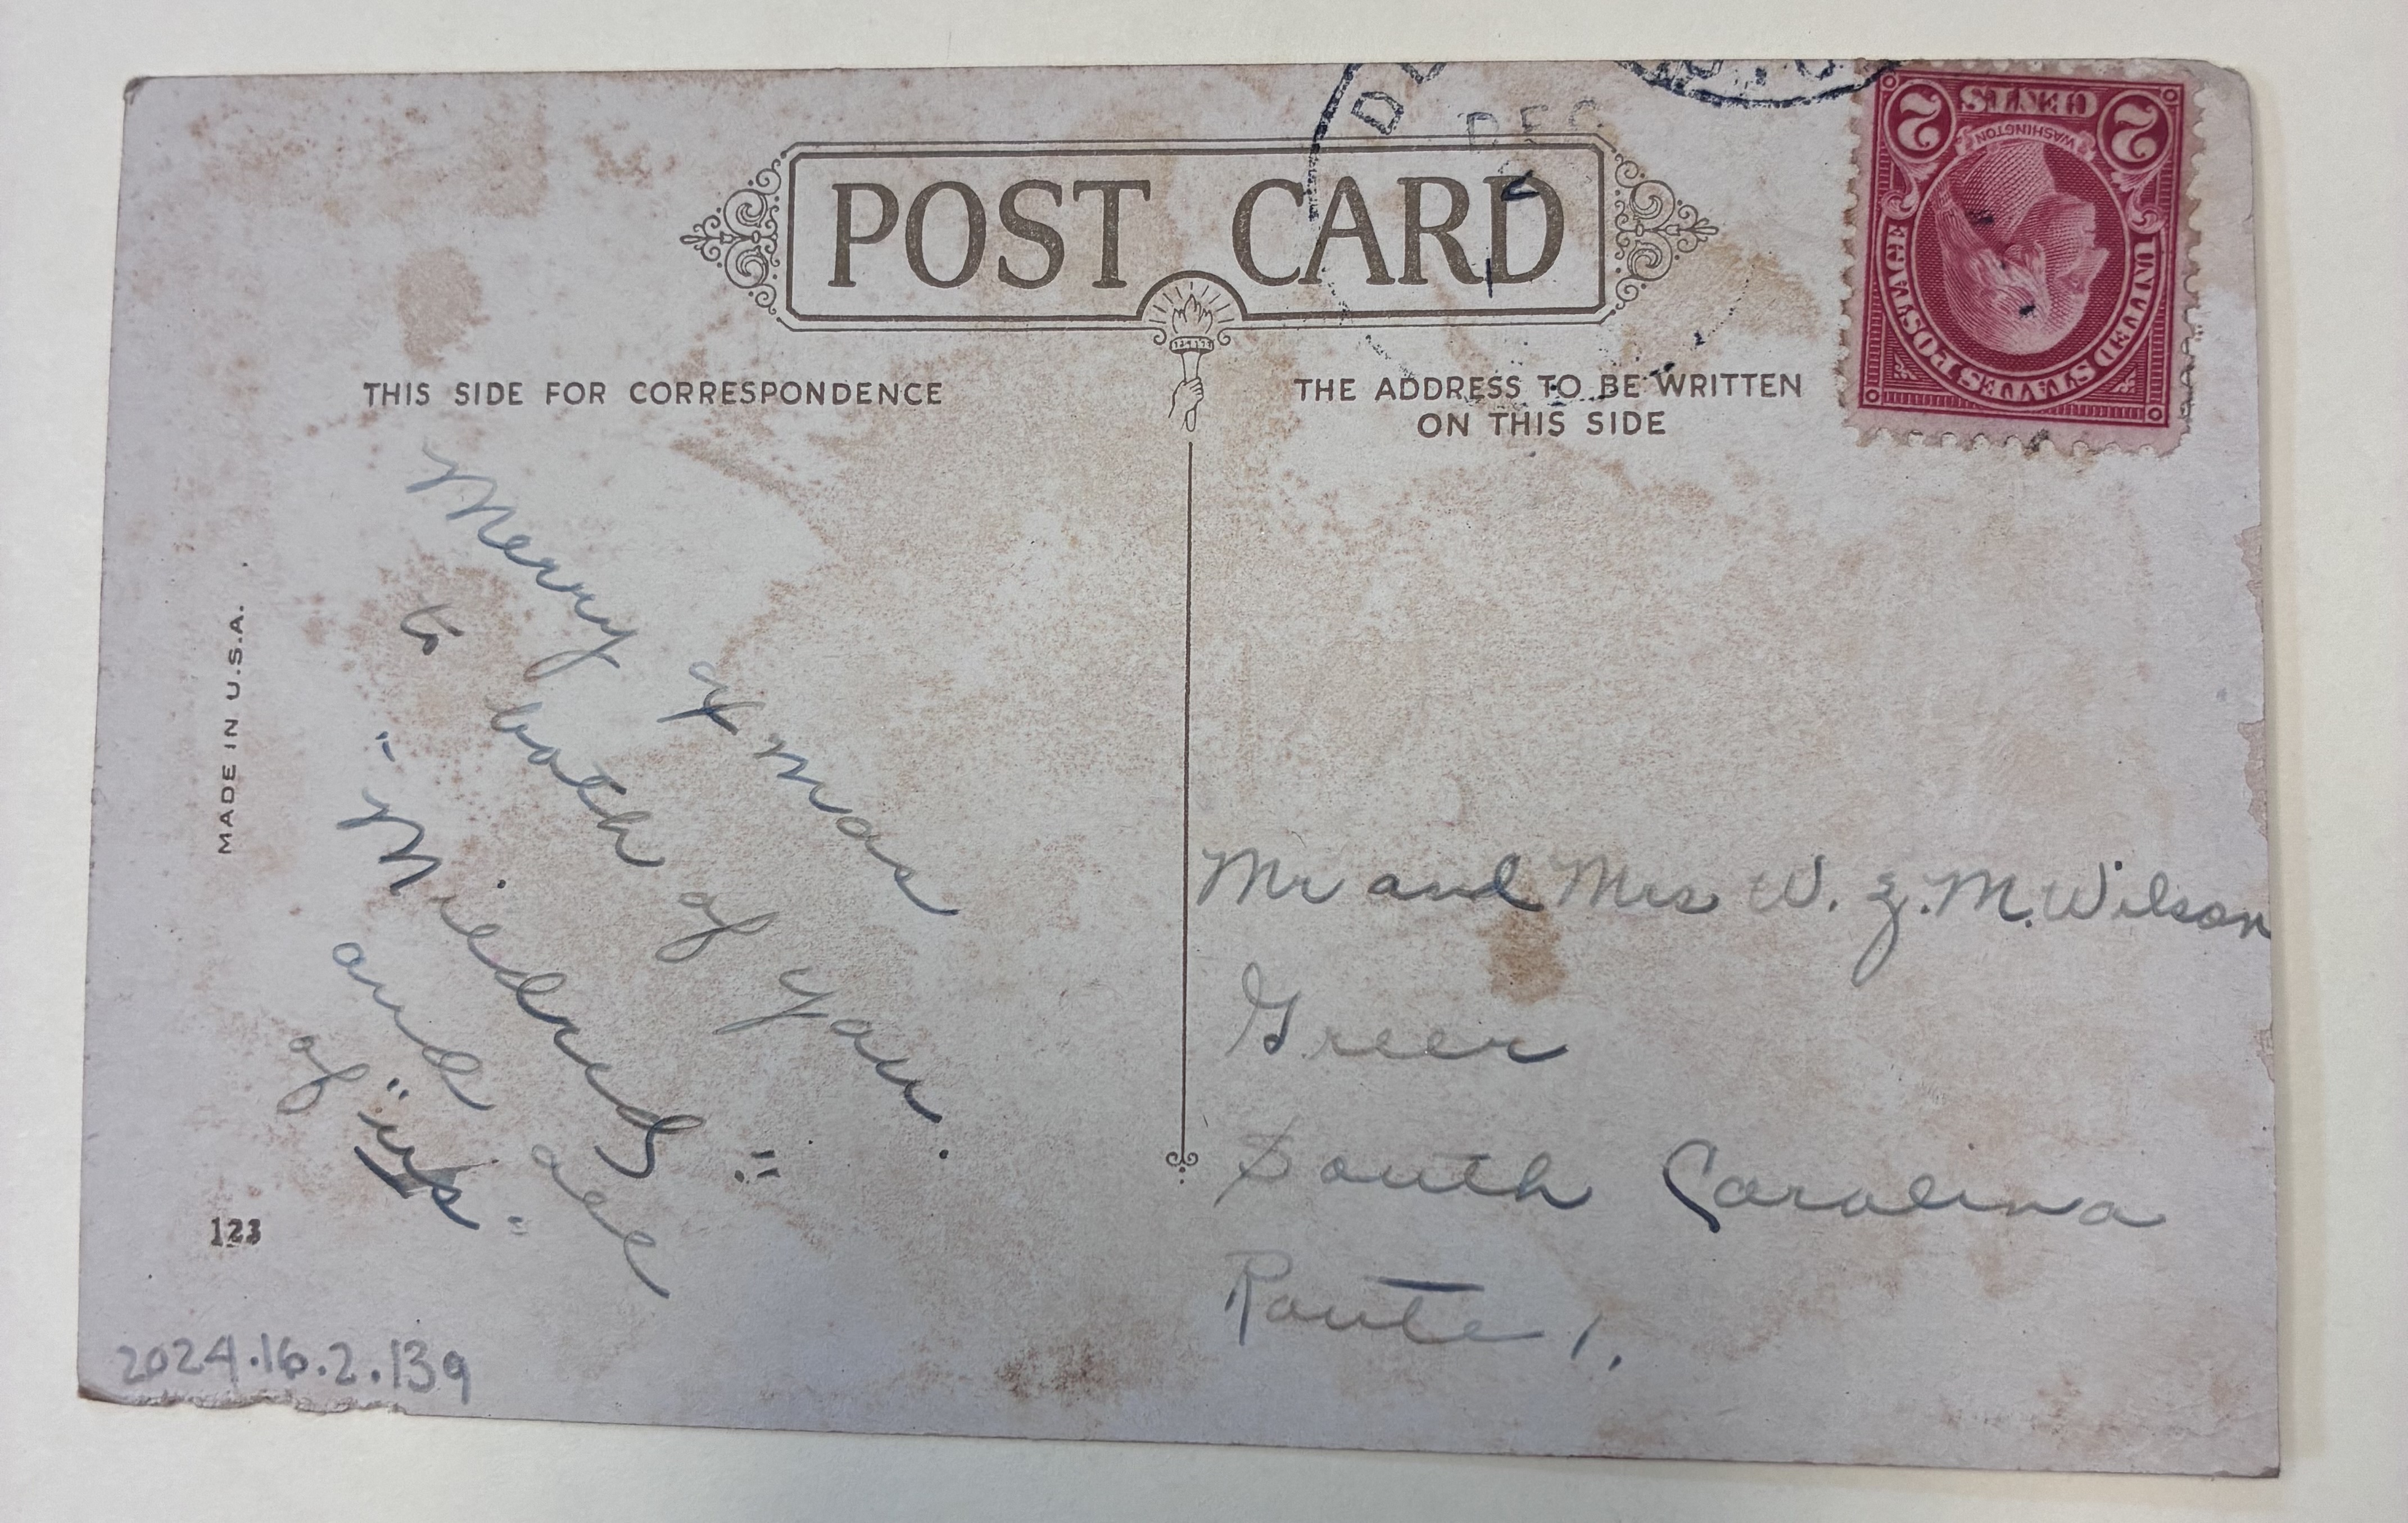 POST CARD
DEC
2 CENTS 2
WASHINGTON
UNITED STATES POSTAGE
THIS SIDE FOR CORRESPONDENCE
THE ADDRESS TO BE WRITTEN
ON THIS SIDE
Merry Xmas
to both of you.
"Mildred"
and all
of "us"
MADE IN U.S.A.
123
2024.16.2.139
Mr and Mrs W. Z. M. Wilson
Greer
South Carolina
Route 1.